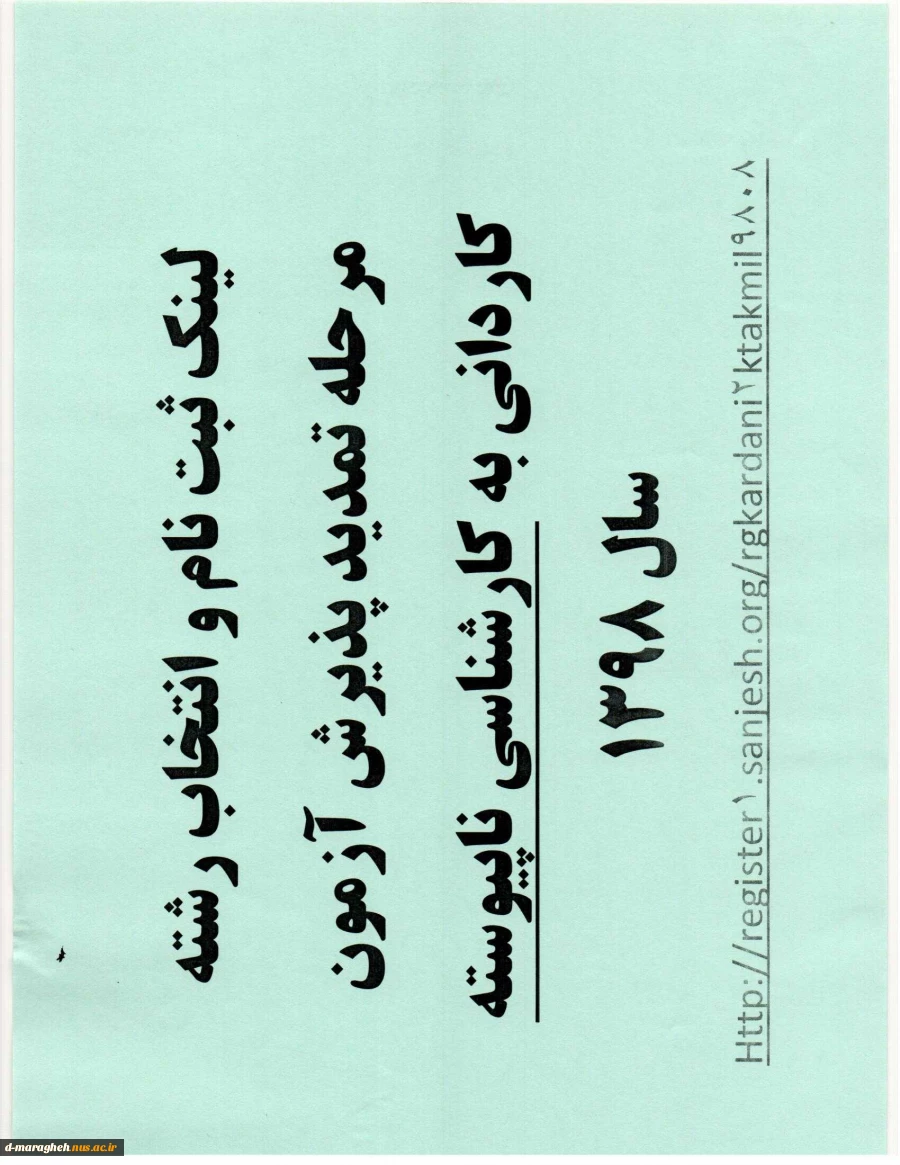 لینک ثبت نام و انتخاب رشته
مرحله تمدید پذیرش آزمون
کاردانی به کارشناسی ناپیوسته
سال ۱۳۹۸
Http://register۱.sanjesh.org/rgkardani۲ktakmil۹۸۰۸
d-maragheh.nus.ac.ir